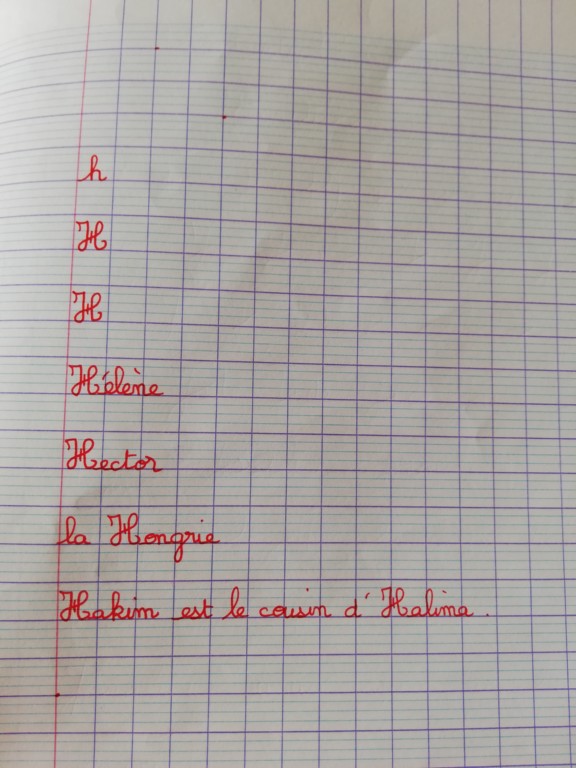 h
H
H
Hélène
Hector
la Hongrie
Hakim est le cousin d'Halima.